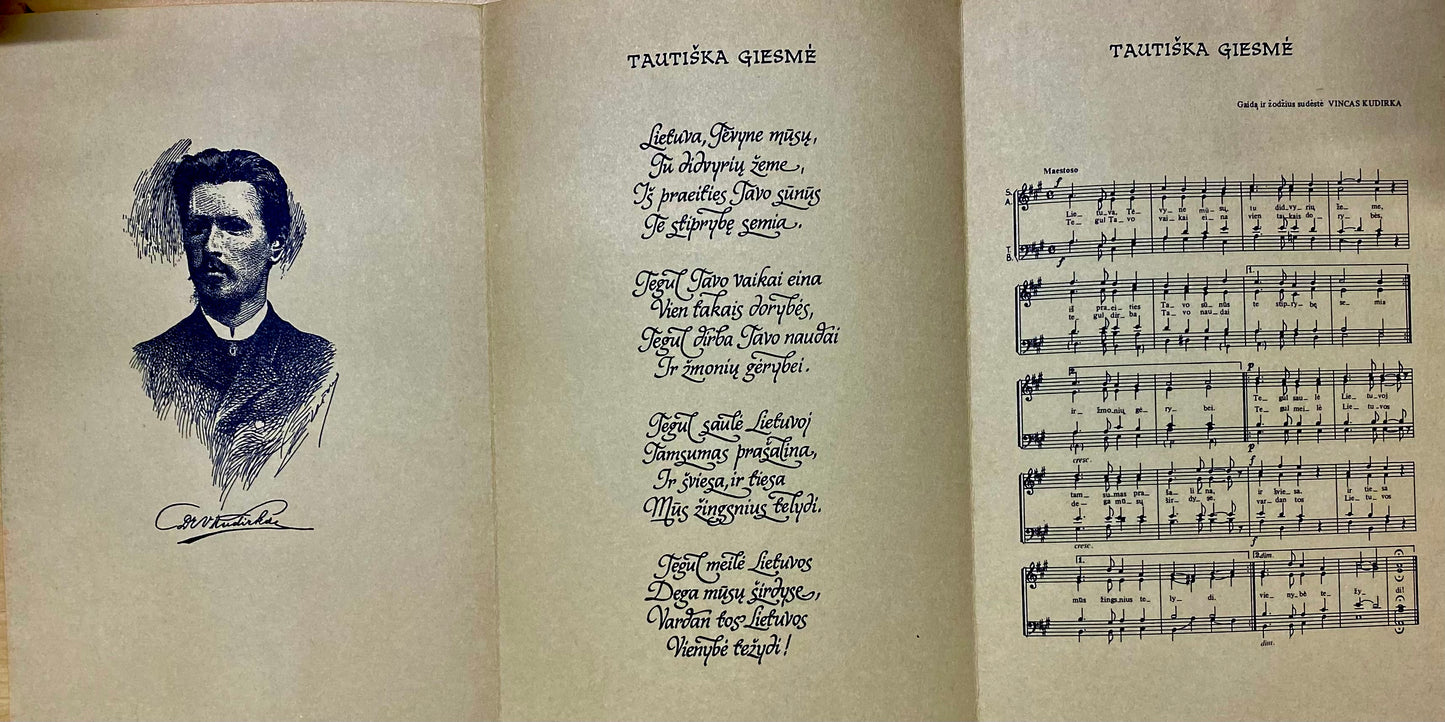 Dr V Kudirka
TAUTIŠKA GIESMĖ
Lietuva, Tėvyne mūsų,
Tu didvyrių žeme,
Iš praeities Tavo sūnūs
Te stiprybę semia.
Tegul Tavo vaikai eina
Vien takais dorybės,
Tegul dirba Tavo naudai
Ir žmonių gėrybei.
Tegul saulė Lietuvoj
Tamsumas prašalina,
Ir šviesa, ir tiesa
Mūs žingsnius telydi.
Tegul meilė Lietuvos
Dega mūsų širdyse,
Vardan tos Lietuvos
Vienybė težydi!
TAUTIŠKA GIESMĖ
Gaidą ir žodžius sudėstė VINCAS KUDIRKA
Maestoso
f
S.
A.
Lie_ tu_va, Tė_ vy_ ne mū_ sų, tu did_vy_ rių že_ me,
Te_ gul Ta_ vo vai_ kai ei_ na vien ta_kais do_ ry_ bės,
T.
B.
f
1.
iš pra_ei_ ties Ta_ vo sū_ nūs te stip_ry_ bę se_ mia
te_ gul dir_ ba Ta_ vo nau_ dai
2.
p
Te_ gul sau_ lė Lie_ tu_voj
ir_ žmo_nių gė_ ry_ bei. Te_ gul mei_ lė Lie_ tu_vos
p
cresc.
f
tam_ su_mas pra_ ša_ li_ na, ir švie_ sa, ir tie_ sa
de_ ga mū_ sų šir_ dy_ se, var_ dan tos Lie_ tu_vos
cresc.
f
1.
2.dim.
mūs žings_nius te_ ly_ di. vie_ ny_bė te_ žy_ di!
dim.